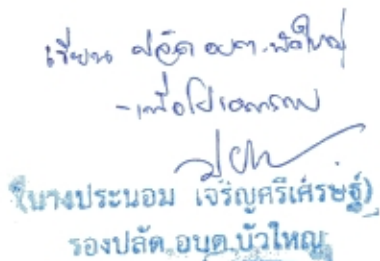 เรียน ปลัด อบต.บัวใหญ่
- เพื่อโปรดทราบ
(นางประนอม เจริญศรีเศรษฐ์)
รองปลัด อบต.บัวใหญ่